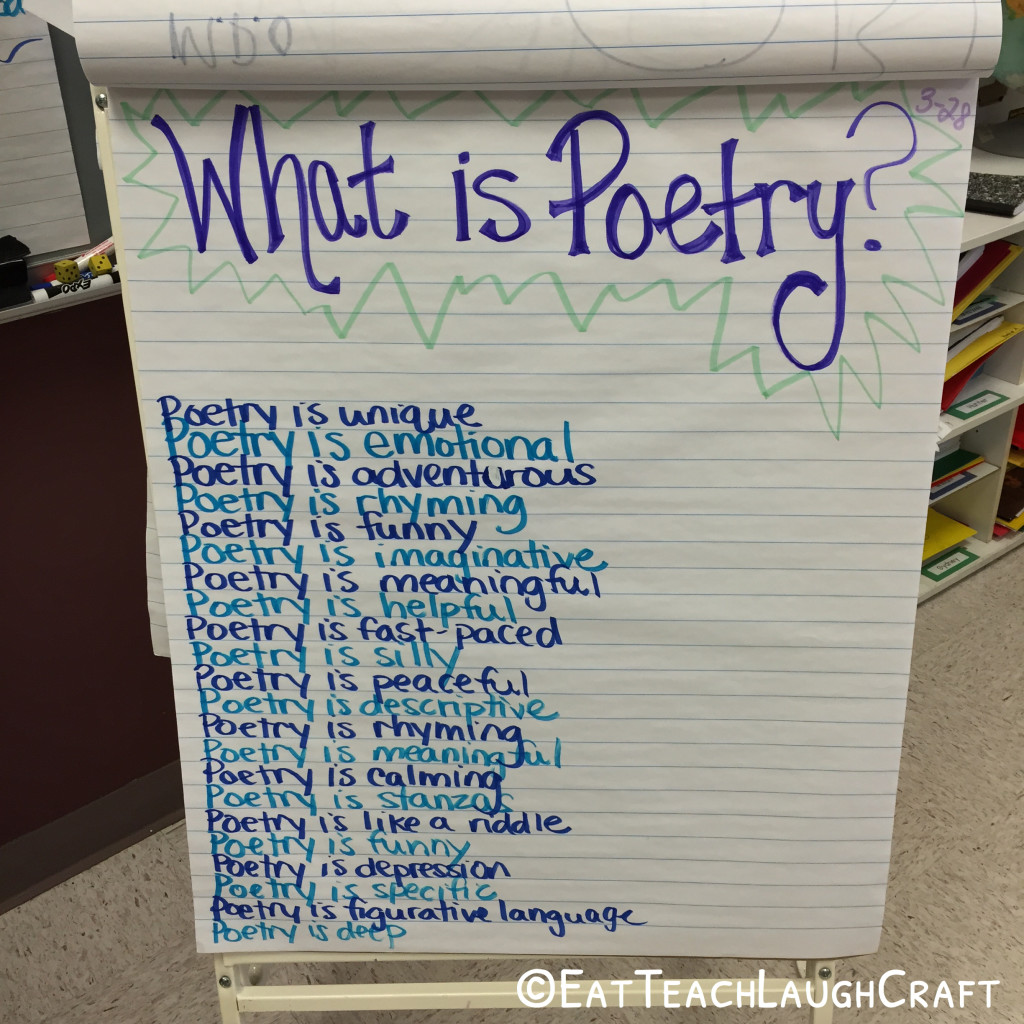 WbiO
3-28
What is Poetry?
Poetry is unique
Poetry is emotional
Poetry is adventurous
Poetry is rhyming
Poetry is funny
Poetry is imaginative
Poetry is meaningful
Poetry is helpful
Poetry is fast-paced
Poetry is silly
Poetry is peaceful
Poetry is descriptive
Poetry is rhyming
Poetry is meaningful
Poetry is calming
Poetry is stanzas
Poetry is like a riddle
Poetry is funny
Poetry is depression
Poetry is specific
Poetry is figurative language
Poetry is deep
EXPO
Sydney
©EatTeachLaughCraft